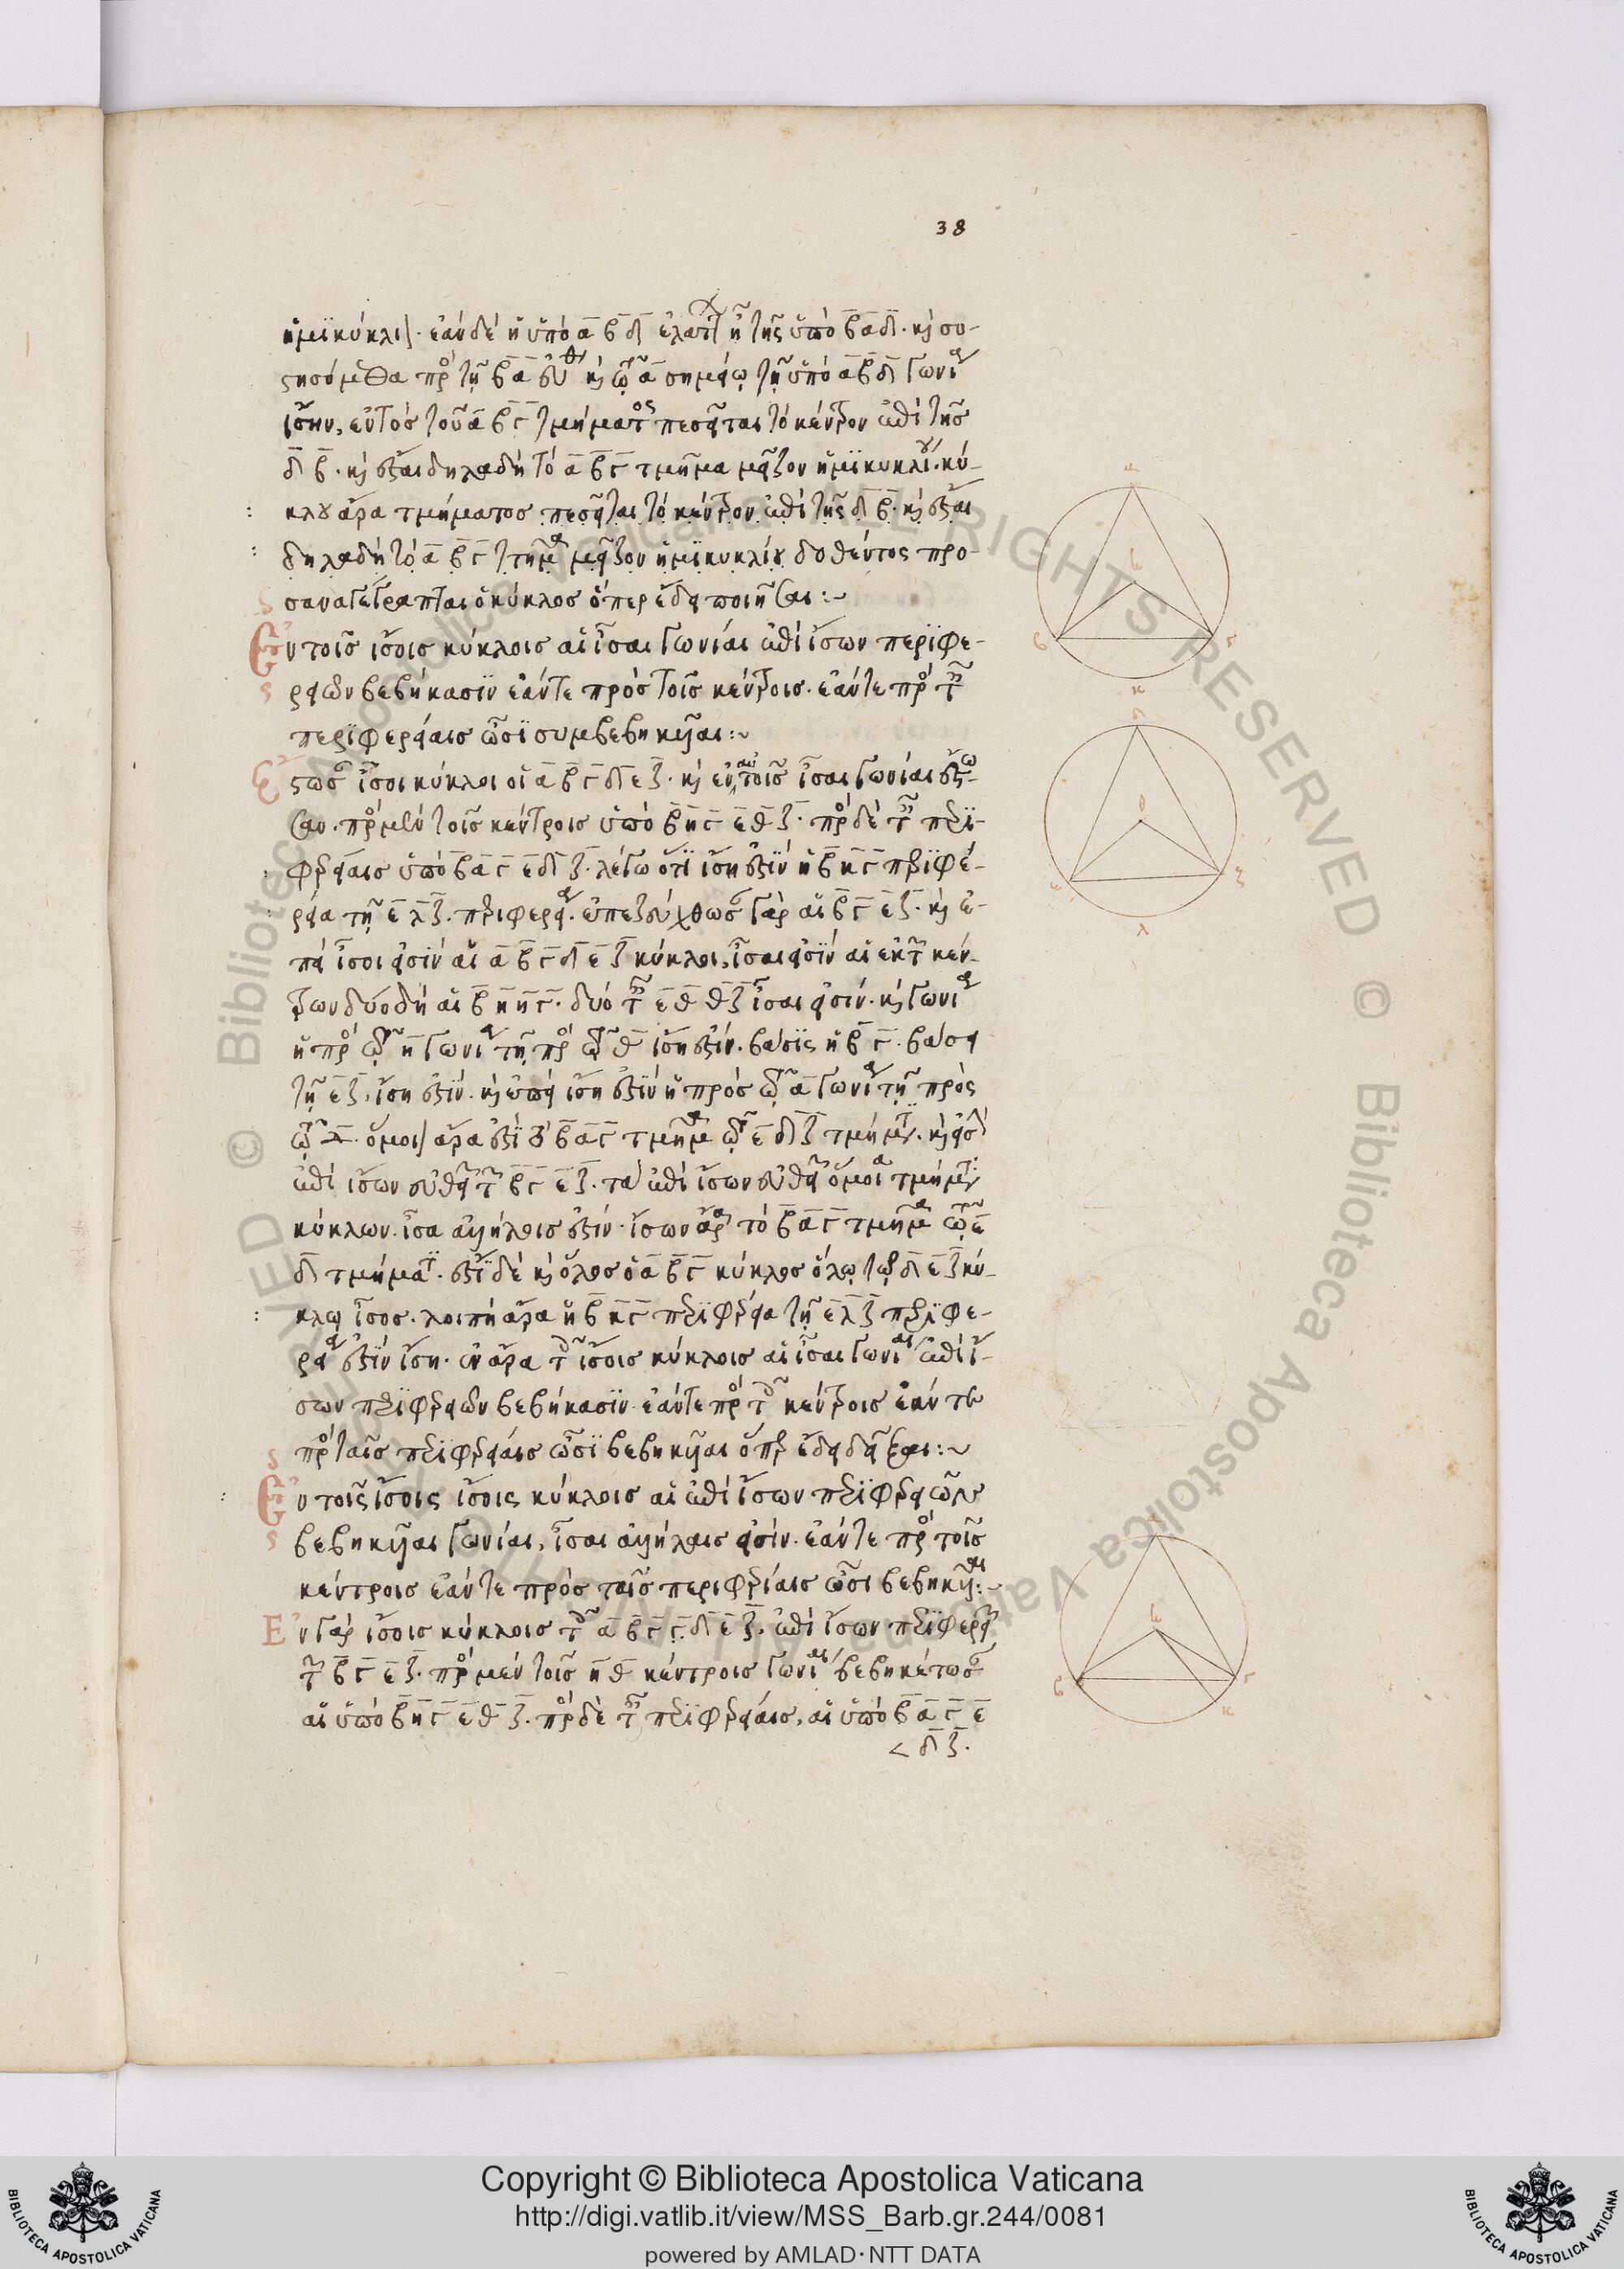 38
ἡμϊκύκλι. ἐὰν δὲ ἡ ὑπὸ α β δ ἐλάττ ᾖ τῆς ὑπὸ β α δ. κὶ συ-
ςησόμεθα πρὸ τῇ β α εὐθ κὶ τῶ α σημείῳ τῇ ὑπὸ α β δ γωνία
ἴσην, ἐντὸς τοῦ α β γ τμήματος πεσεῖται τὸ κέντρον ἐπὶ τῆς
δ β. κὶ ἔσται δηλαδὴ τὸ α β γ τμῆμα μεῖζον ἡμϊκυκλίου. κύ-
κλου ἄρα τμήματος πεσεῖται τὸ κέντρον ἐπὶ τῆς δ β. κὶ ἔσται
δηλαδὴ τὸ α β γ τμῆμα μεῖζον ἡμϊκυκλίου δοθέντος προ-
σαναγέγραπται ὁ κύκλος ὅπερ ἔδει ποιῆσαι :~
Ἐν τοῖς ἴσοις κύκλοις αἱ ἴσαι γωνίαι ἐπὶ ἴσων περϊφε-
ρειῶν βεβήκασϊν ἐάν τε πρὸς τοῖς κέντροις. ἐάν τε πρὸ τ
περϊφερείαις ὦσϊ συμβεβηκυῖαι :~
Ἔςωσ ἴσοι κύκλοι οἱ α β γ δ ε ζ. κὶ ἐν αὐτοῖς ἴσαι γωνίαι ἔςω
σαν. πρὸ μὲν τοῖς κέντροις ὑπὸ β η γ ε θ ζ. πρὸ δὲ τ περϊ-
φερείαις ὑπὸ β α γ ε δ ζ. λέγω ὅτϊ ἴση ἐςῒν ἡ β κ γ περϊφέ-
ρεια τῇ ε λ ζ. περιφερεία. ἐπεζεύχθωσ γὰρ αἱ β γ ε ζ. κὶ ἐ-
πεὶ ἴσοι εἰσϊν αἱ α β γ δ ε ζ κύκλοι, ἴσαι εἰσϊν αἱ ἐκ τ κέν-
τρων δύο δὴ αἱ β η η γ. δυὸ τ ε θ θ ζ ἴσαι εἰσίν. κὶ γωνία
ἡ πρὸ τῷ η γωνία τῇ πρὸ τῷ θ ἴση ἐςίν. βάσϊς ἡ β γ. βάσει
τῇ ε ζ, ἴση ἐςϊν. κὶ ἐπεὶ ἴση ἐςϊν ἡ πρὸς τῷ α γωνία τῇ πρὸς
τῷ δ. ὅμοι ἄρα ἐςϊ τὸ β α γ τμῆμα τῷ ε δ ζ τμήμτϊ. κὶ εἰσ
ἐπὶ ἴσων εὐθεῖ τ β γ ε ζ. τὰ ἐπὶ ἴσων εὐθεῖ ὅμοια τμήμτ
κύκλων. ἴσα ἀλλήλοις ἐςίν. ἴσων ἄρα τὸ β α γ τμῆμα τῷ ε
δ τμήματϊ. ἔςϊ δὲ κὶ ὅλος ὁ α β γ κύκλος ὅλῳ τῷ δ ε ζ κύ-
κλῳ ἴσος. λοιπὴ ἄρα ἡ β κ γ περϊφέρεια τῇ ε λ ζ περϊφε-
ρεία ἐςϊν ἴση. ἐν ἄρα τ ἴσοις κύκλοις αἱ ἴσαι γωνίαι ἐπὶ ἴ-
σων περϊφερειῶν βεβήκασϊν. ἐάν τε πρὸ τ κέντροις ἐάν τε
πρὸ ταῖς περϊφερείαις ὦσϊ βεβηκυῖαι ὅπερ ἔδει δεῖξαι :~
Ἐν τοῖς ἴσοις ἴσοις κύκλοις αἱ ἐπὶ ἴσων περϊφερειῶν
βεβηκυῖαι γωνίαι, ἴσαι ἀλλήλαις εἰσίν. ἐάν τε πρὸ τοῖς
κέντροις ἐάν τε πρὸς ταῖς περιφερίαις ὦσι βεβηκυῖαι :~
Ἐν γὰρ ἴσοις κύκλοις τ α β γ γ δ ε ζ. ἐπὶ ἴσων περϊφερει
τ β γ ε ζ. πρὸ μὲν τοῖς η θ κέντροις γωνίαι βεβηκέτωσ
αἱ ὑπὸ β η γ ε θ ζ. πρὸ δὲ τ περϊφερείαις, αἱ ὑπὸ β α γ ε
< δ ζ.
Copyright © Biblioteca Apostolica Vaticana
http://digi.vatlib.it/view/MSS_Barb.gr.244/0081
powered by AMLAD·NTT DATA